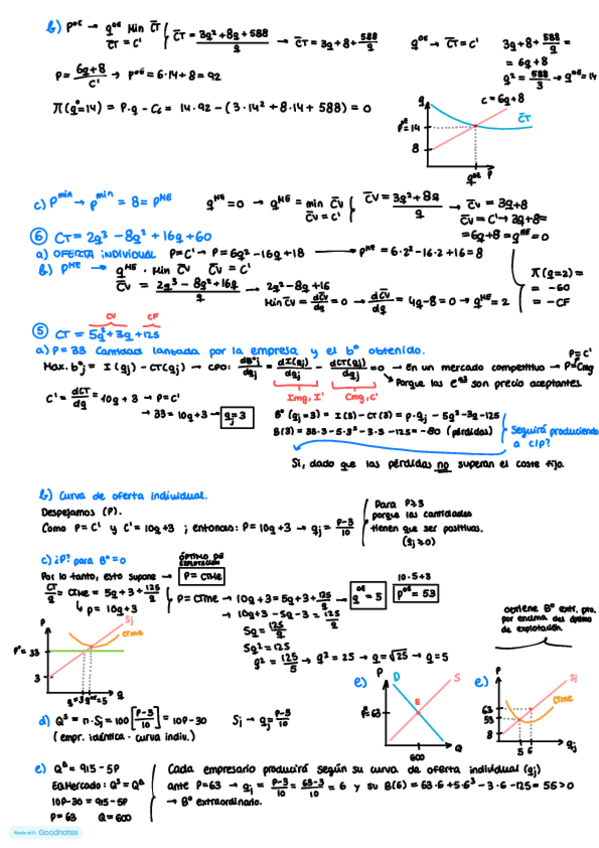 b) P^OE → q^OE Min C̄T̄ C̄T̄ = C' { C̄T̄ = 3q²+8q+588 / q → C̄T̄ = 3q+8+588/q q^OE → C̄T̄ = C' 3q+8+588/q =
= 6q+8
P = 6q+8 / C' → P^OE = 6·14+8 = 92 q² = 588/3 → q^OE = 14
π(q=14) = P·q - Ct = 14·92 - (3·14²+8·14+588) = 0
q c = 6q+8
P^OE = 14 C̄T̄
8
q^OE P
c) P^min → P^min = 8 = P^ME q^ME = 0 → q^ME = min C̄V̄ C̄V̄ = C' { C̄V̄ = 3q²+8q / q → C̄V̄ = 3q+8
C̄V̄ = C' → 3q+8 =
= 6q+8 = q^ME = 0
⑥ CT = 2q³ - 8q² + 16q + 60
a) OFERTA INDIVIDUAL P = C' → P = 6q² - 16q + 18 → P^ME = 6·2² - 16·2 + 16 = 8
b) P^ME → q^ME · Min C̄V̄ C̄V̄ = C'
C̄V̄ = 2q³ - 8q² + 16q / q → 2q² - 8q + 16
Min C̄V̄ = dC̄V̄/dq = 0 → dC̄V̄/dq = 4q - 8 = 0 → q^ME = 2
π(q=2) =
= -60
= -CF
CV CF
⑤ CT = 5q² + 3q + 125
a) P = 33 Cantidad lanzada por la empresa y el bº obtenido.
Max. bº j = I(qj) - CT(qj) → CPO: dBºj/dqj = dI(qj)/dqj - dCT(qj)/dqj = 0 → En un mercado competitivo → P = C' P = Cmg
Img, I' Cmg, C' Porque las e^sas son precio aceptantes.
C' = dCT/dq = 10q + 3 → P = C'
→ 33 = 10q + 3 → qj = 3
Bº(qj=3) = I(3) - CT(3) = P·qj - 5q² - 3q - 125
B(3) = 33·3 - 5·3² - 3·3 - 125 = -80 (pérdidas)
Seguirá produciendo a c/p?
Sí, dado que las pérdidas no superan el coste fijo.
b) Curva de oferta individual.
Despejamos (P).
Como P = C' y C' = 10q + 3 ; entonces: P = 10q + 3 → qj = P-3/10
Para P≥3
porque las cantidades
tienen que ser positivas.
(qj ≥ 0)
c) ¿P? para Bº = 0
ÓPTIMO DE EXPLOTACIÓN
Por lo tanto, esto supone → P = CTMe
CT/q = CTMe = 5q + 3 + 125/q
↳ P = 10q + 3
P = CTme → 10q + 3 = 5q + 3 + 125/q → q^OE = 5
10·5+3
P^OE = 53
→ 10q + 3 - 5q - 3 = 125/q
5q = 125/q
5q² = 125
q² = 125/5 → q² = 25 → q = √25 → q = 5
obtiene Bº extr, pto.
por encima del óptimo
de explotación
P Sj CTme
P* = 33
3
q=3 q^OE=5 q
d) Q^S = n·Sj = 100 [P-3/10] = 10P - 30 Sj → qj = P-3/10
(empr. idéntica · curva indiv.)
e) P D S
P = 63 E
600 Q
e) P Sj
63 CTme
53
8
5 6 qj
e) Q^D = 915 - 5P
EQ.Mercado: Q^S = Q^D
10P - 30 = 915 - 5P
P = 63 Q = 600
Cada empresario producirá según su curva de oferta individual (qj)
ante P = 63 → qj = P-3/10 = 63-3/10 = 6 y su B(6) = 63·6 + 5·6² - 3·6 - 125 = 56 > 0
→ Bº extraordinario.
Made with Goodnotes